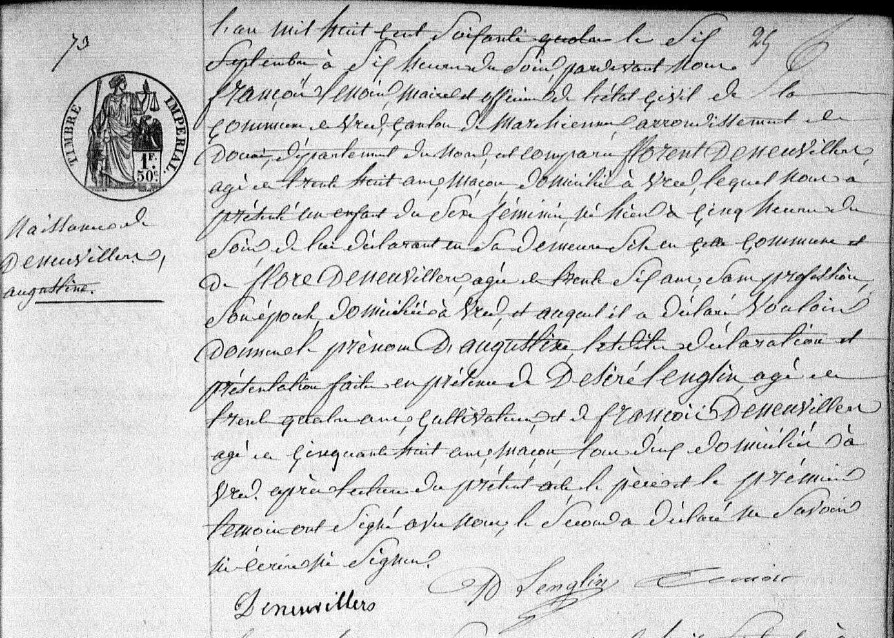 73
25
TIMBRE IMPERIAL
1F.
50c.
Naissance de
Deneuvillers,
augustine.
L'an mil huit cent soixante quatre le six
Septembre à six heures du soir, pardevant nous
françois Lenoir, maire et officier de l'état civil de la
commune de Vred, canton de Marchiennes arrondissement de
Douai, département du Nord, est comparu florent Deneuvillers,
agé de trente huit ans, maçon domicilié à Vred, lequel nous a
présenté un enfant du sexe féminin, né hier à cinq heures du
soir, de lui déclarant en sa demeure sise en cette commune et
de flore Deneuvillers, agée de trente six ans, sans profession,
son épouse domiciliée à Vred, et auquel il a déclaré vouloir
donner le prénom D'augustine, lesdites déclaration et
présentation faites en présence de Désiré Lenglin agé de
trente quatre ans, cultivateur, et de françois Deneuvillers
agé de cinquante huit ans, maçon, tous deux domiciliés à
Vred. après lecture du présent acte le père et le premier
témoin ont signé avec nous, le second a déclaré ne savoir
ni écrire ni signer.
Deneuvillers
D Lenglin
Lenoir